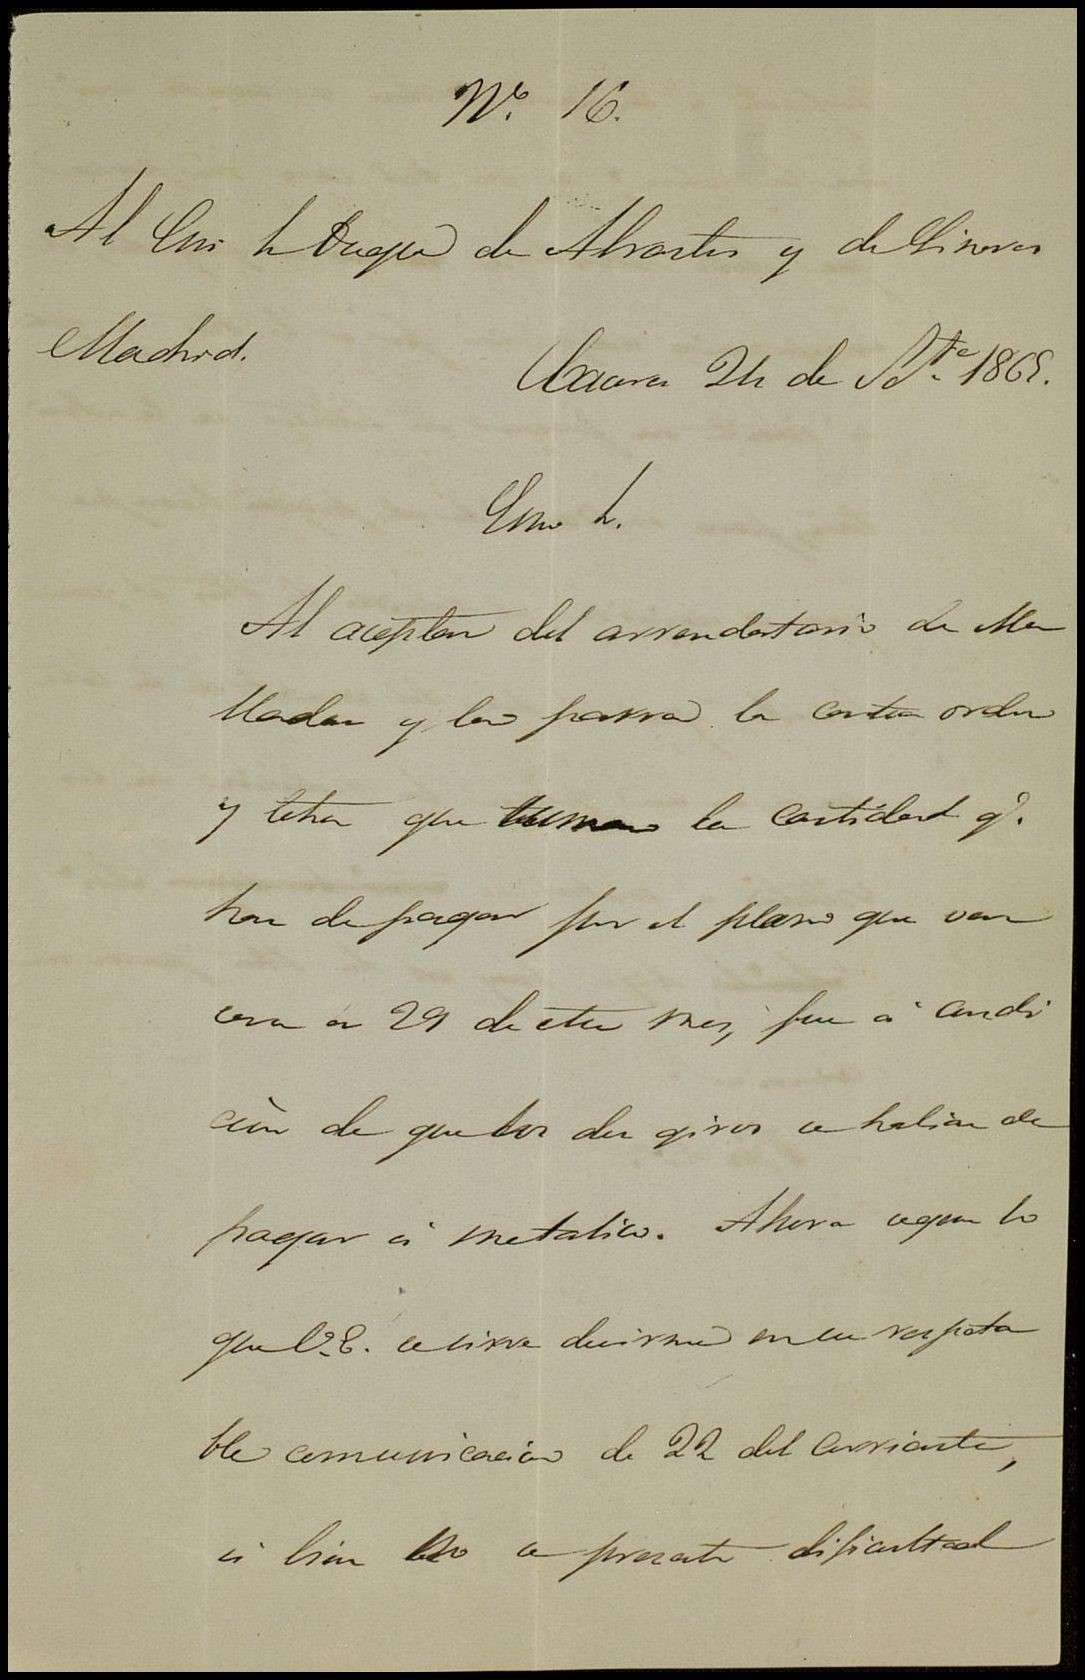 Nº. 16.
Al Emo Sr Duque de Abrantes y de Linares
Madrid.
24 de 1868.
Emo Sr.
Al aceptar del arrendatario de
y la parra la carta orden
y letra que la cantidad qe.
han de pagar por el plazo que ven
cera en 29 de este mes, fue a' condi
ción de que los dos giros se habian de
pagar en metalico. Ahora segun lo
que V. E. se sirve decirme en su respeta
ble comunicacion de 22 del corriente,
si bien no se presenta dificultad